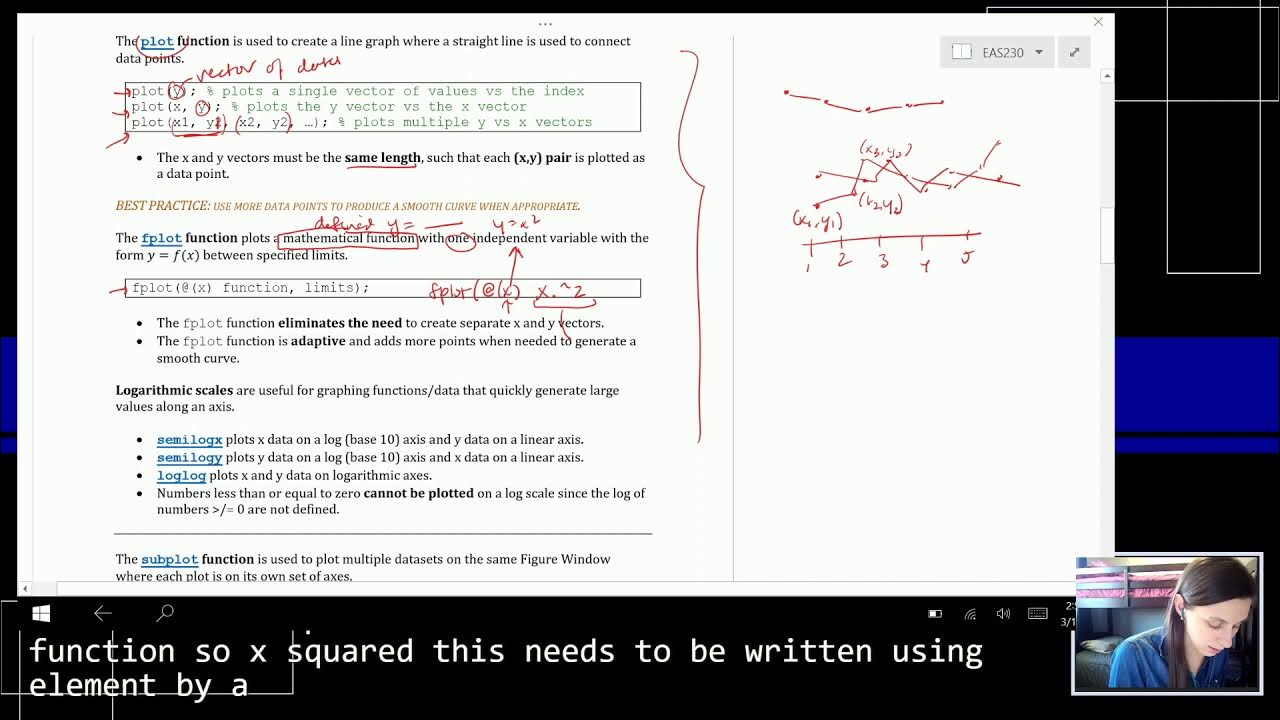 EAS230
The plot function is used to create a line graph where a straight line is used to connect
data points.
vector of data
plot(y); % plots a single vector of values vs the index
plot(x, y); % plots the y vector vs the x vector
plot(x1, y1, x2, y2, …); % plots multiple y vs x vectors
• The x and y vectors must be the same length, such that each (x,y) pair is plotted as
a data point.
BEST PRACTICE: USE MORE DATA POINTS TO PRODUCE A SMOOTH CURVE WHEN APPROPRIATE.
defined y = y=x²
The fplot function plots a mathematical function with one independent variable with the
form y = f(x) between specified limits.
fplot(@(x) function, limits);
fplot(@(x) x.^2
• The fplot function eliminates the need to create separate x and y vectors.
• The fplot function is adaptive and adds more points when needed to generate a
smooth curve.
Logarithmic scales are useful for graphing functions/data that quickly generate large
values along an axis.
• semilogx plots x data on a log (base 10) axis and y data on a linear axis.
• semilogy plots y data on a log (base 10) axis and x data on a linear axis.
• loglog plots x and y data on logarithmic axes.
• Numbers less than or equal to zero cannot be plotted on a log scale since the log of
numbers >/= 0 are not defined.
The subplot function is used to plot multiple datasets on the same Figure Window
where each plot is on its own set of axes.
(x3,y3)
(x2,y2)
(x1,y1)
1 2 3 4 5
2:
3/1
function so x squared this needs to be written using
element by a